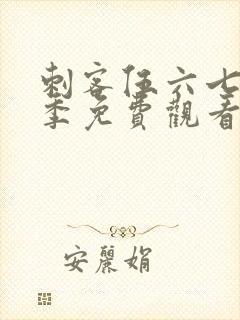 刺客伍六七
季免費觀看
安麗娟